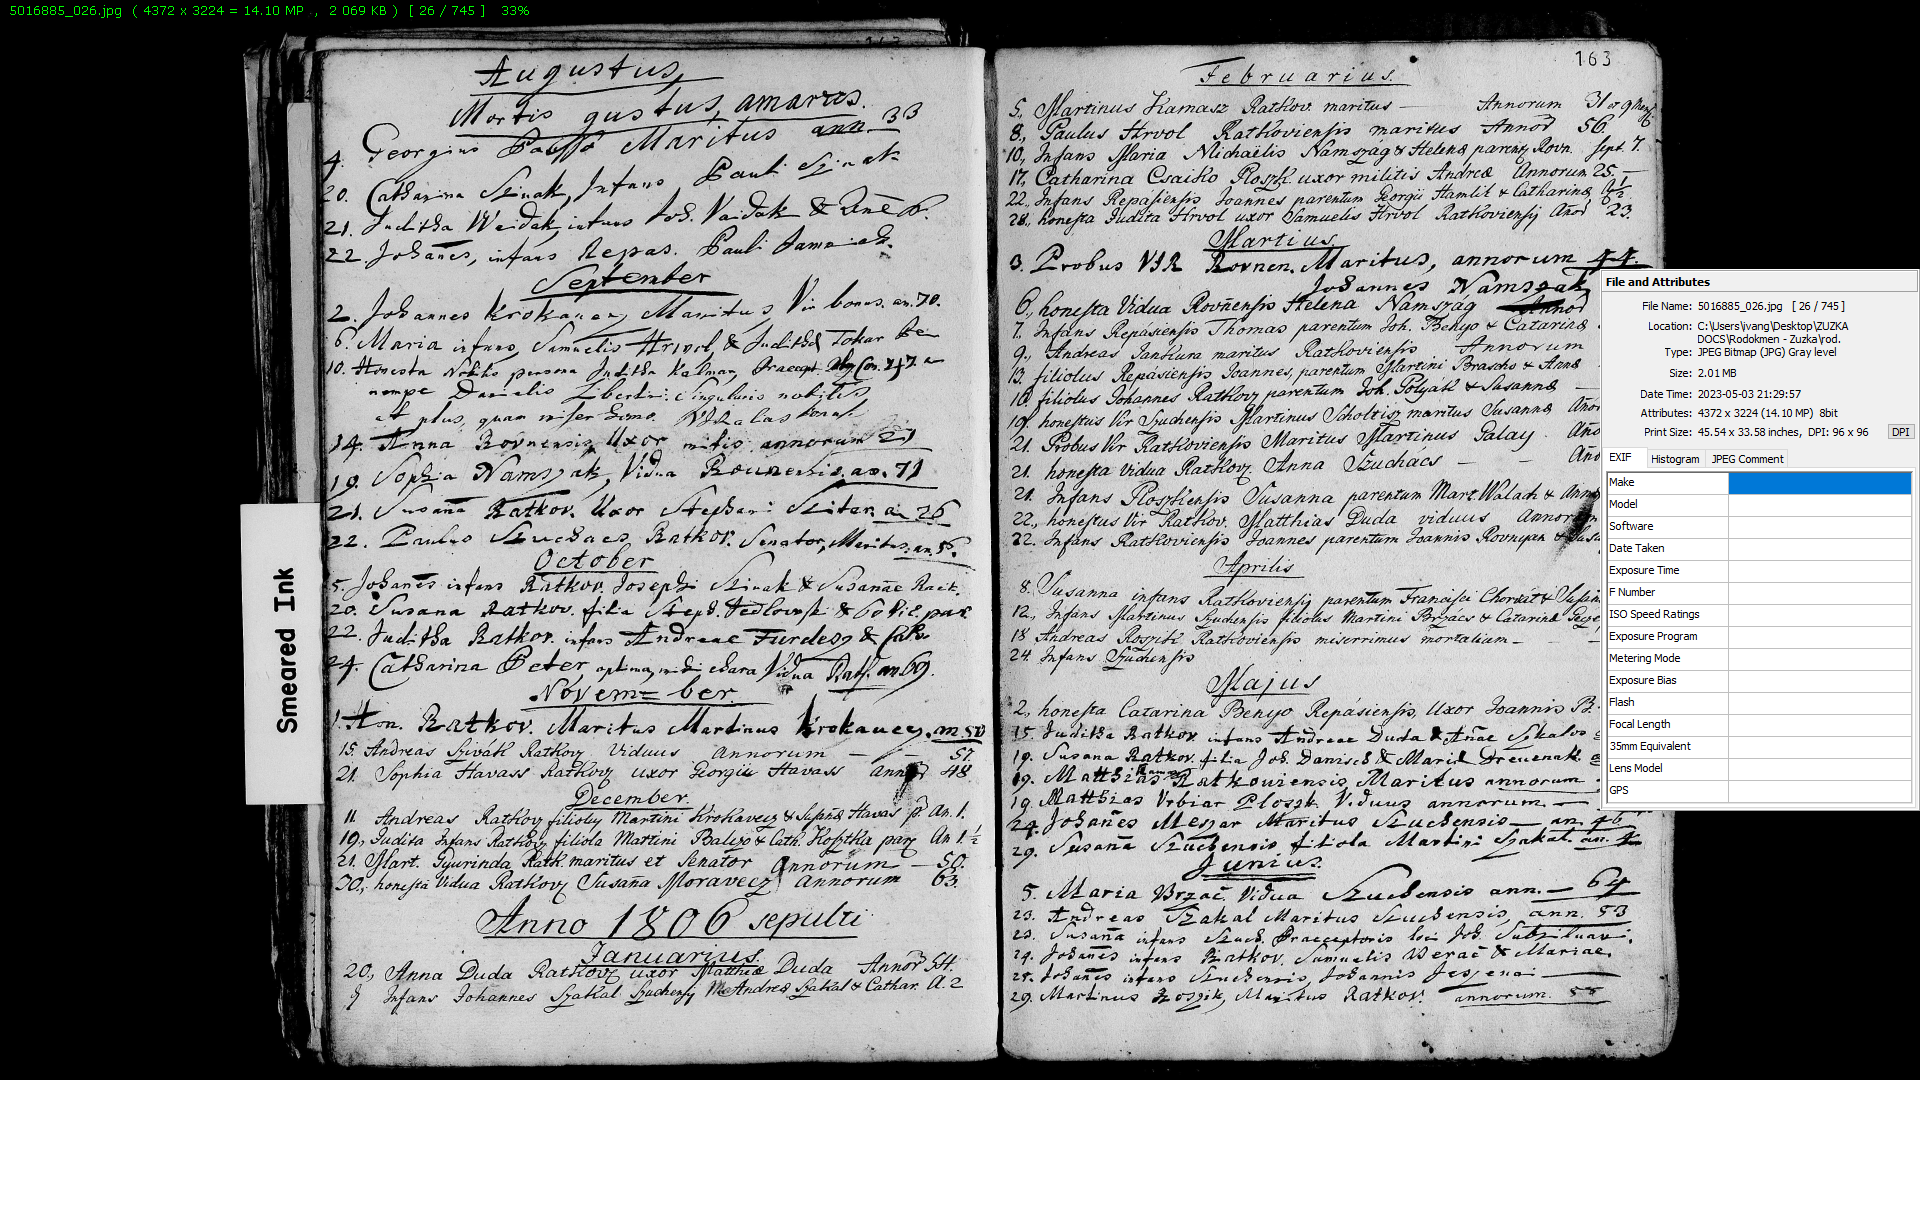 5016885_026.jpg ( 4372 x 3224 = 14.10 MP , 2 069 KB ) [ 26 / 745 ] 33%
Augustus,
Mortis gustus, amarus.
4. Georgius Maritus ann. 33
20. Catharina Infans Pauli
21. Juditha Waidak, infans Joh. Vaidak &
22. Johanes, infans Repas. Pauli
September
2. Johannes Krokavecz, Maritus, Vir bonus. an. 70.
6. Maria infans, Samuelis Hrivol & Juditha Tokar
10. Honesta persona Juditha Kalman,
nempe Danielis Singularis nobilis
et plus, quam miser homo.
14. Anna Rovnensis, Uxor mitis annorum 21
19. Sophia Namszak, Vidua Rounensis. an. 71
21. Susaña Ratkov. Uxor Stephani an 26
22. Paulus Szuchacs, Ratkov. Senator, Maritus. an. 56.
October
5. Johanes infans Ratkov. Josephi & Susanae
20. Susana Ratkov. filia Steph. & par.
22. Juditha Ratkov. infans Andreae Furdesz &
24. Catharina Peter, optima, mihi chara Vidua Ratk. an 69.
Novem=ber.
1. Hon. Ratkov. Maritus Martinus Krokavecz. an.
15. Andreas Szivák Ratkov Viduus annorum — 57.
21. Sophia Havass Ratkov uxor Georgii Havass 48
December
11 Andreas Ratkov filiolus Martini Krokavecz & Susañæ Havas p. An. 1.
19, Judita Infans Ratkov, filiola Martini & Cath. Kosztka par An 1. ½
21. Mart. Gyurinda Ratk maritus et Senator Annorum — 50.
30., honesta Vidua Ratkov Susaña Moravecz annorum 63.
Anno 1806 sepulti
Januarius.
20., Anna Duda Ratkov uxor Matthiæ Duda Annor 54.
9 Infans Johannes Szakal Szuchensis Andreæ Szakal & Cathar. A. 2
Smeared Ink
163
Februarius.
5., Martinus Kamasz Ratkov maritus — Annorum 31 et 9 Mens.
8., Paulus Hrvol Ratkoviensis maritus Annor 56.
10., Infans Maria Michaëlis Namszág & Helenæ parenz Rovn. Sept. 7.
17, Catharina Csaiko Ploszk uxor militis Andreæ Annorum 25. —
22., Infans Repasiensis Joannes parentum Georgii Hamlik & Catharinæ
28., honesta Judita Hrvol uxor Samuelis Hrvol Ratkoviensis Añor 23.
Martius
3. Probus VIR Rovnen. Maritus, annorum 44.
Johannes Namszak
6., honesta Vidua Rovñensis Helena Namszág
7. Infans Repasiensis Thomas parentum Joh. Benyo & Catarinæ
9., Andreas Jankura maritus Ratkoviensis Annorum
13. filiolus Repásiensis Joannes, parentum Martini Brascho & Annæ
16 filiolus Johannes Ratkov parentum Joh. Polyák & Susannæ —
19. honestus Vir Szuchensis Martinus Scholtisz maritus Susannæ Año
21. Probus Vir Ratkoviensis Maritus Martinus Galay. Año
21. honesta Vidua Ratkov. Anna Szuchacs — — Año
21. Infans Ploszkiensis Susanna parentum Mart Walach &
22., honestus Vir Ratkov. Matthias Duda viduus Annorum
22. Infans Ratkoviensis Joannes parentum Joannis Rovnyan &
Aprilis
8. Susanna infans Ratkoviensis parentum Francisci Chorvat &
12, Infans Martinus Szuchensis filiolus Martini Brzács & Catarinæ
18 Andreas Koszik Ratkoviensis miserrimus mortalium —
24. Infans Szuchensis
Majus
2., honesta Catarina Benyo Repásiensis Uxor Joannis B.
15. Juditha Ratkov. infans Andreae Duda & Añae
19. Susana Ratkov. filia Joh. Danisch & Mariæ Drevenak.
19. Matthias Ratkoviensis Maritus annorum
19. Matthias Vrbiar Ploszk Viduus annorum. —
24. Johañes Meszar Maritus Szuchensis — an. 46
29. Susaña Szuchensis filiola Martini Szakal. an. 4
Junius.
5. Maria Brzač. Vidua Szuchensis ann. — 64
23. Andreas Szakal Maritus Szuchensis, ann. 53
23. Susaña infans Szuch. Praeceptoris loci Joh.
24. Johañes infans Ratkov. Samuelis & Mariae.
25. Johañes infans Szuchensis, Johannis
29. Martinus Koszik, Maritus Ratkov. annorum. 55
File and Attributes
File Name: 5016885_026.jpg [ 26 / 745 ]
Location: C:\Users\ivang\Desktop\ZUZKA
DOCS\Rodokmen - Zuzka\rod.
Type: JPEG Bitmap (JPG) Gray level
Size: 2.01 MB
Date Time: 2023-05-03 21:29:57
Attributes: 4372 x 3224 (14.10 MP) 8bit
Print Size: 45.54 x 33.58 inches, DPI: 96 x 96 DPI
EXIF Histogram JPEG Comment
Make
Model
Software
Date Taken
Exposure Time
F Number
ISO Speed Ratings
Exposure Program
Metering Mode
Exposure Bias
Flash
Focal Length
35mm Equivalent
Lens Model
GPS